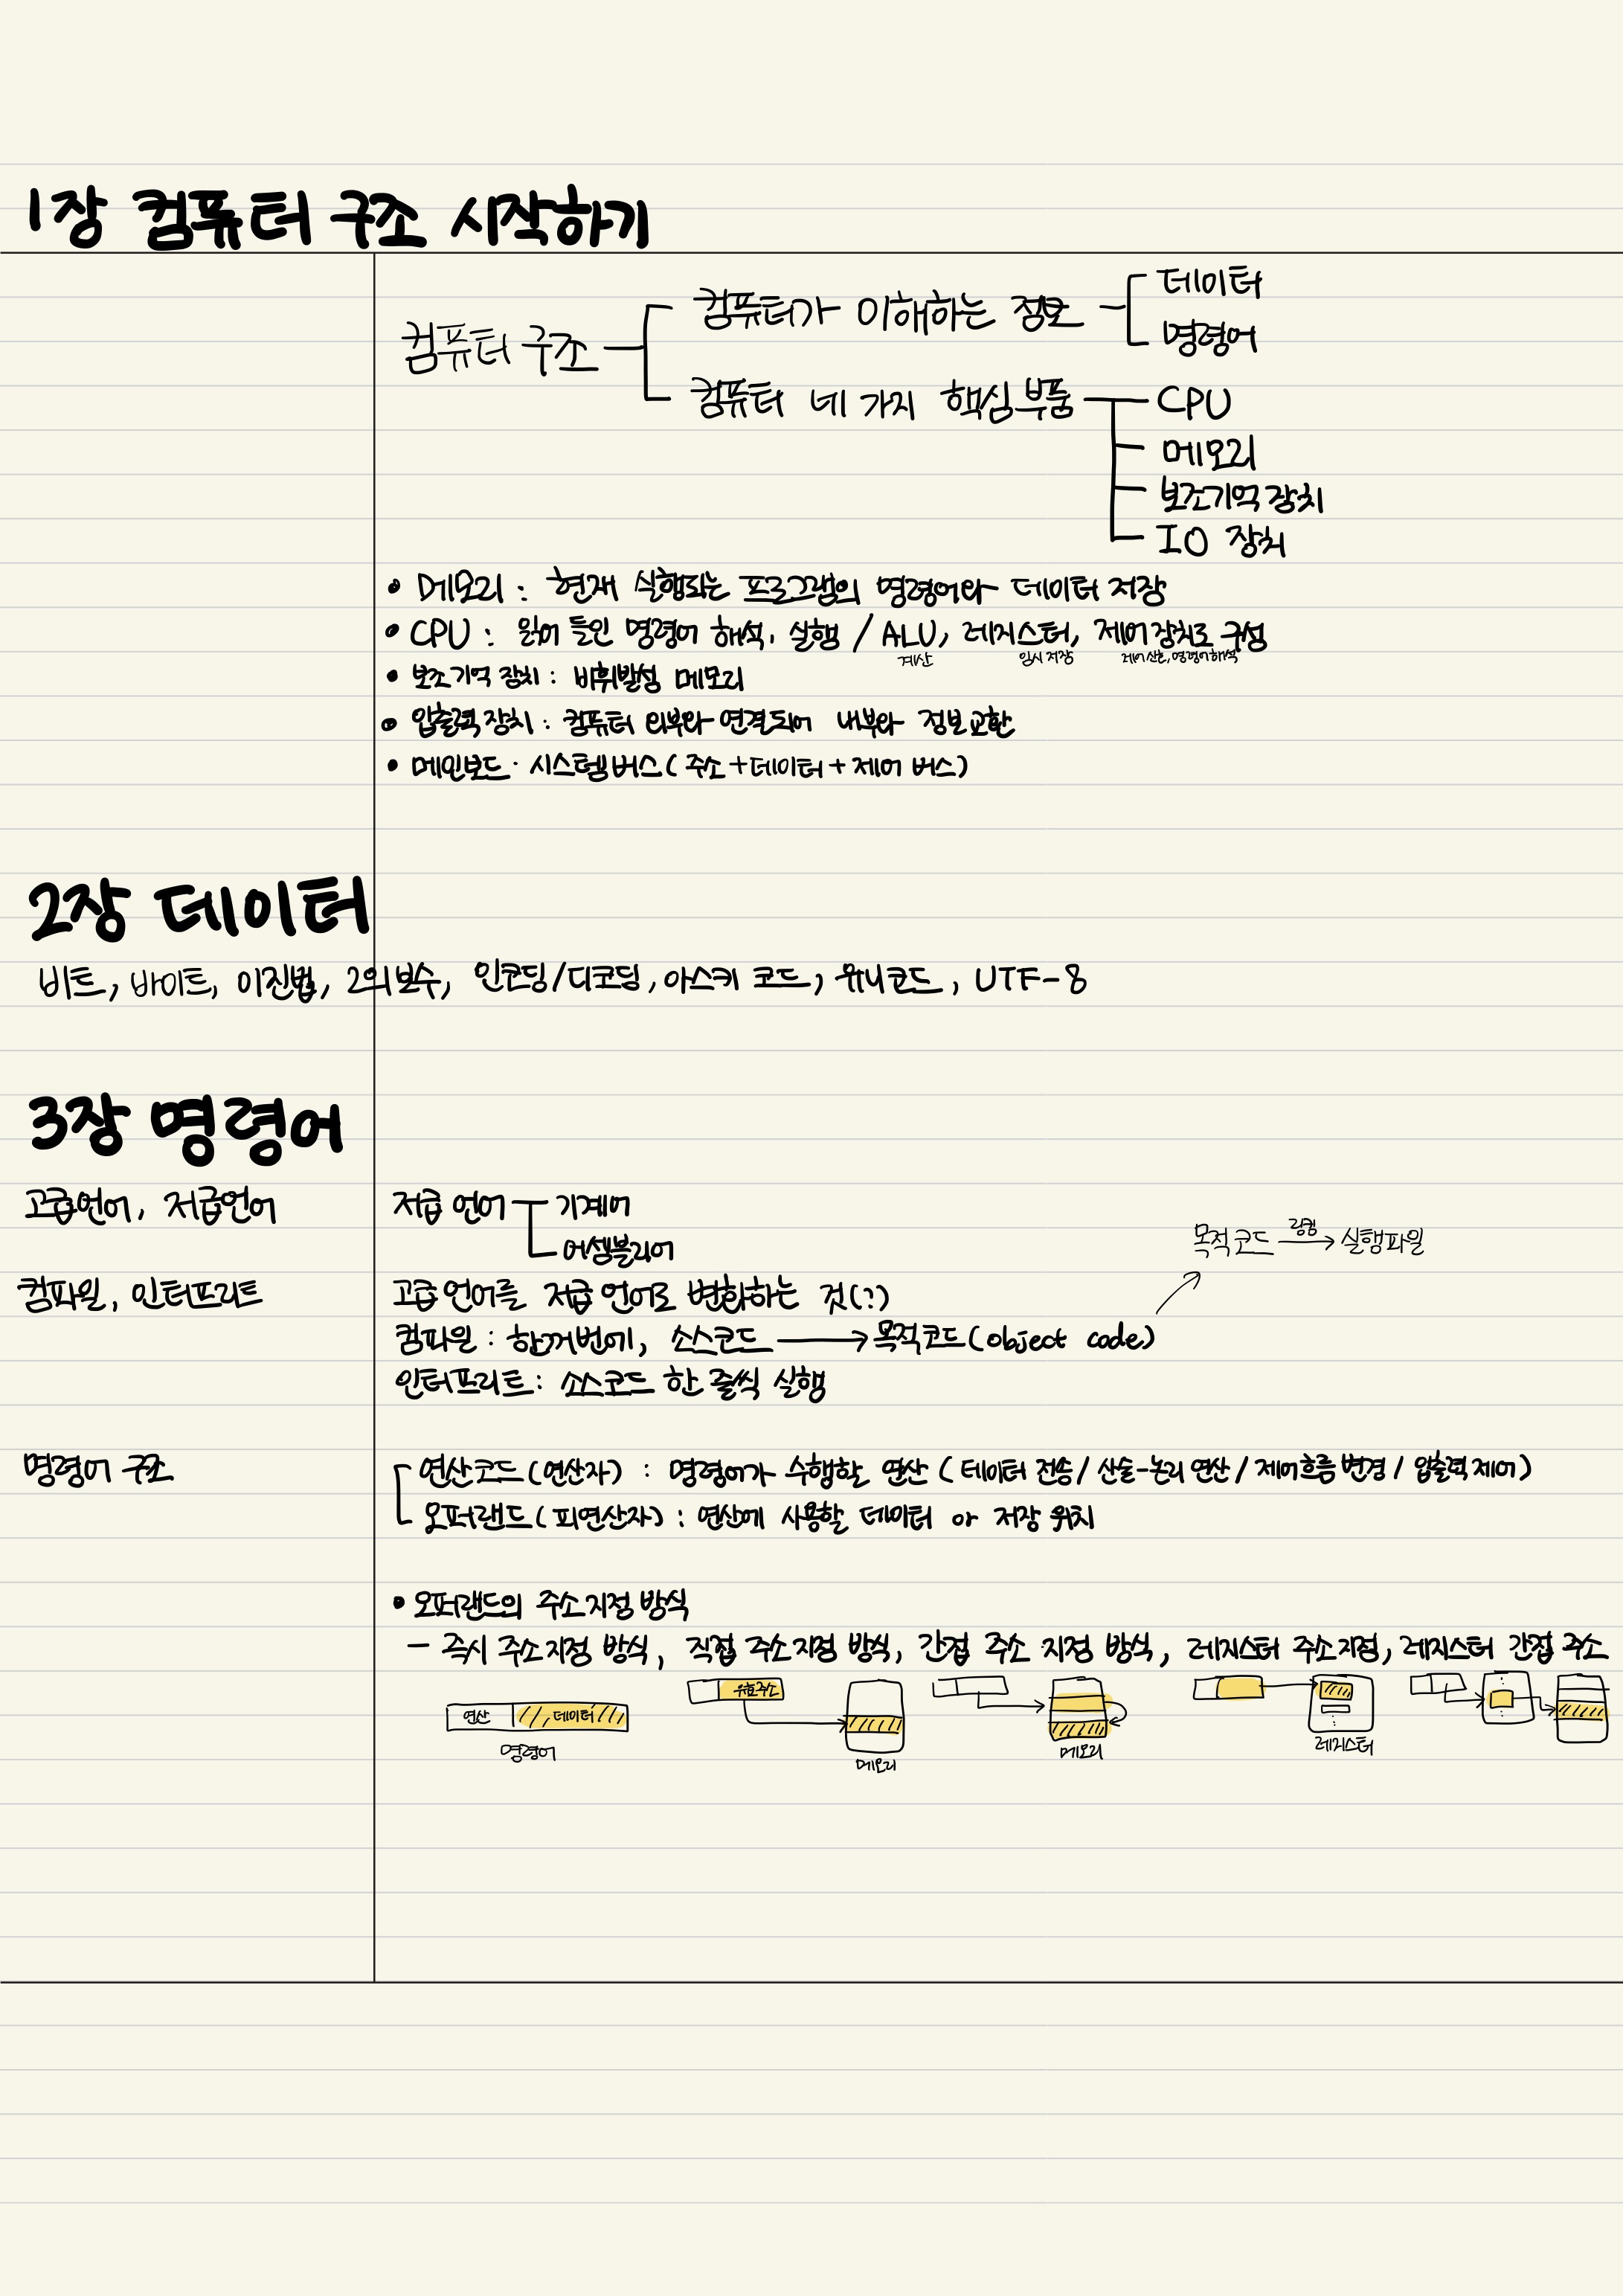 1장 컴퓨터 구조 시작하기
컴퓨터 구조
컴퓨터가 이해하는 정보
데이터
명령어
컴퓨터 네 가지 핵심 부품
CPU
메모리
보조기억 장치
IO 장치
• 메모리 : 현재 실행되는 프로그램의 명령어와 데이터 저장
• CPU : 읽어 들인 명령어 해석, 실행 / ALU, 레지스터, 제어 장치로 구성
계산 임시 저장 제어 신호, 명령어 해석
• 보조기억 장치 : 비휘발성 메모리
• 입출력 장치 : 컴퓨터 외부와 연결되어 내부와 정보 교환
• 메인보드 · 시스템 버스 ( 주소 + 데이터 + 제어 버스 )
2장 데이터
비트, 바이트, 이진법, 2의 보수, 인코딩/디코딩, 아스키 코드, 유니코드, UTF-8
3장 명령어
고급언어, 저급언어
저급 언어
기계어
어셈블리어
목적 코드 링킹 → 실행파일
컴파일, 인터프리트
고급 언어를 저급 언어로 변환하는 것(?)
컴파일 : 한꺼번에, 소스코드 → 목적코드 (object code)
인터프리트 : 소스코드 한 줄씩 실행
명령어 구조
연산코드 (연산자) : 명령어가 수행할 연산 ( 데이터 전송 / 산술-논리 연산 / 제어흐름 변경 / 입출력 제어)
오퍼랜드 ( 피연산자) : 연산에 사용할 데이터 or 저장 위치
• 오퍼랜드의 주소 지정 방식
- 즉시 주소 지정 방식, 직접 주소 지정 방식, 간접 주소 지정 방식, 레지스터 주소 지정, 레지스터 간접 주소
유효주소
연산 데이터
명령어
메모리
메모리
레지스터